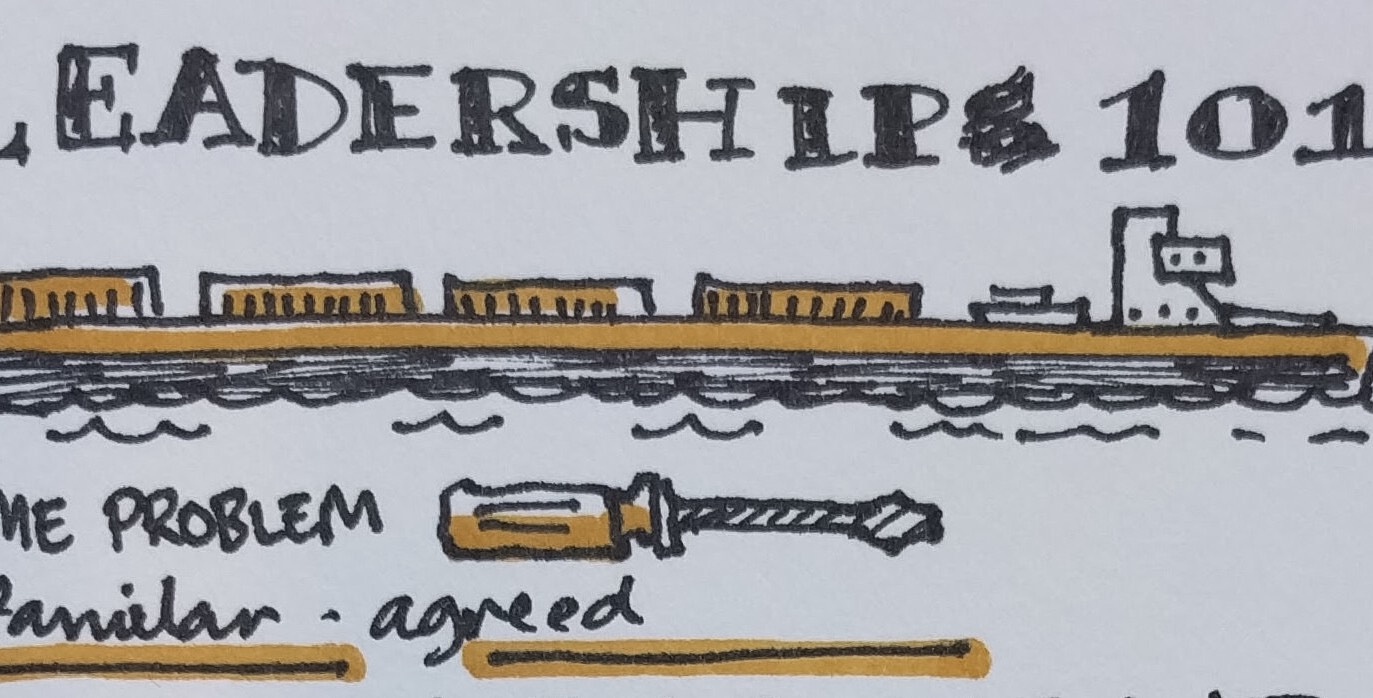 LEADERSHIP 101
ME PROBLEM
familar - agreed